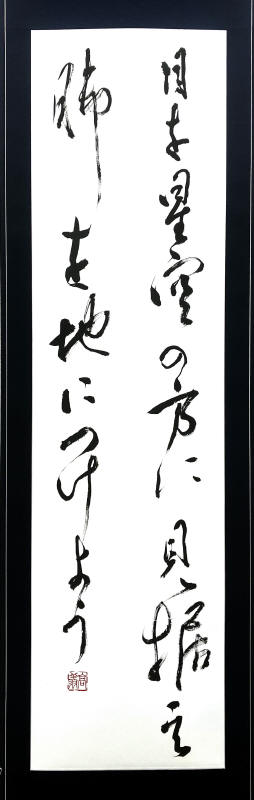 目を星空の方に見据え
脚を地につけよう